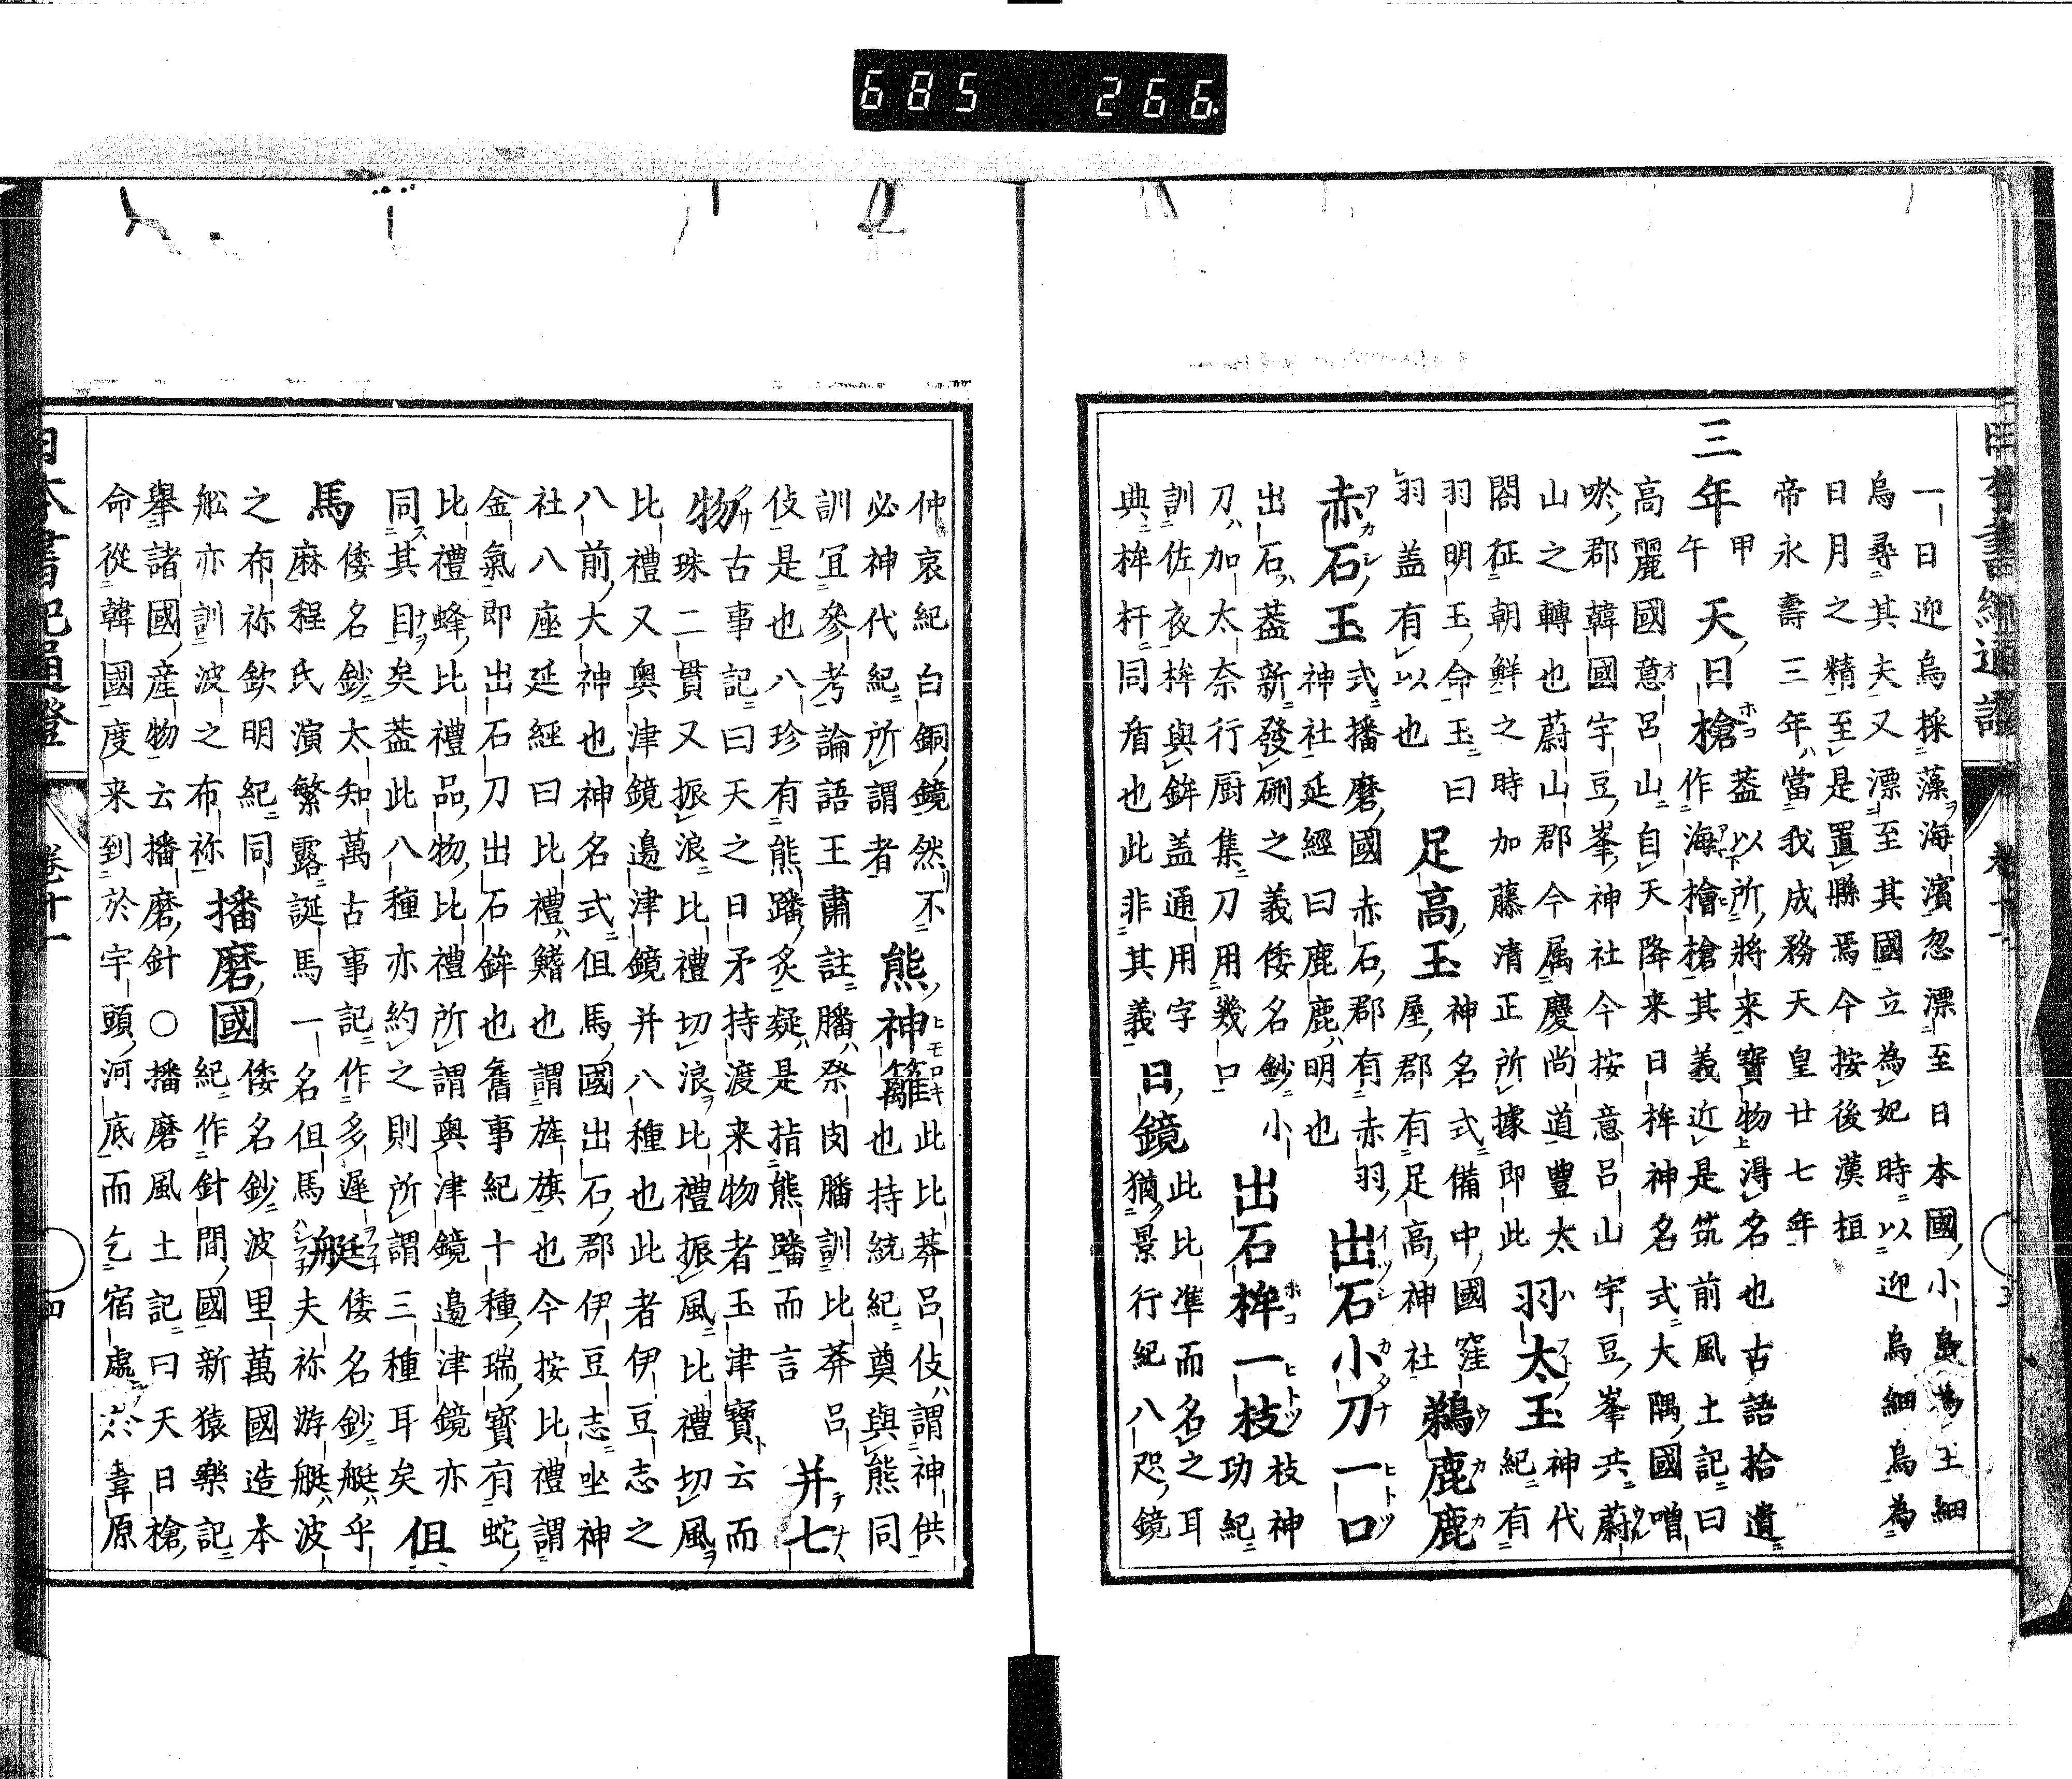 日本書紀通證 卷十一 三
一日迎烏採藻海濱忽漂至日本國小島為王細
烏尋其夫又漂至其國立為妃時以迎烏細烏為
日月之精至是置縣焉今按後漢桓
帝永壽三年當我成務天皇廿七年
三年甲午天日槍蓋以所將来寶物得名也古語拾遺
作海檜槍其義近是筑前風土記曰
高麗國意呂山自天降来日桙神名式大隅國噌
唹郡韓國宇豆峯神社今按意呂山宇豆峯共蔚
山之轉也蔚山郡今属慶尚道豊太
閤征朝鮮之時加藤清正所據即此羽太玉神代
紀有
羽明玉命玉曰
羽盖有以也足高玉神名式備中國窪
屋郡有足高神社鵜鹿鹿
赤石玉式播磨國赤石郡有赤羽
神社延經曰鹿鹿明也出石小刀一口
出石蓋新發硎之義倭名鈔小
刀加太奈行厨集刀用幾口出石桙一枝枝神
功紀
訓佐夜桙與鉾盖通用字
典桙杆同盾也此非其義日鏡此比準而名之耳
猶景行紀八咫鏡
仲哀紀白銅鏡然不
必神代紀所謂者熊神籬此比莽呂伎謂神供
也持統紀奠與熊同
訓冝參考論語王肅註膰祭肉膰訓比莽呂
伎是也八珍有熊蹯炙疑是指熊蹯而言并七
物古事記曰天之日矛持渡来物者玉津寶云而
珠二貫又振浪比禮切浪比禮振風比禮切風
比禮又奥津鏡邊津鏡并八種也此者伊豆志之
八前大神也神名式但馬國出石郡伊豆志坐神
社八座延經曰比禮鰭也謂旌旗也今按比禮謂
金氣即出石刀出石鉾也舊事紀十種瑞寶有蛇
比禮蜂比禮品物比禮所謂奥津鏡邊津鏡亦
同其目矣蓋此八種亦約之則所謂三種耳矣但
馬倭名鈔太知萬古事記作多遅
麻程氏演繁露誕馬一名但馬艇倭名鈔艇乎
夫祢游艇波
之布祢欽明紀同
舩亦訓波之布祢播磨國倭名鈔波里萬國造本
紀作針間國新猿樂記
舉諸國産物云播磨針○播磨風土記曰天日槍
命從韓國度来到於宇頭河底而乞宿處於葦原
日本書紀通證 卷十一 四
685 266